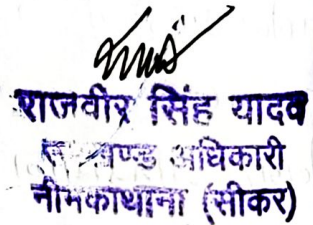 राजवीर सिंह यादव
अधिकारी
नीमकाथाना (सीकर)